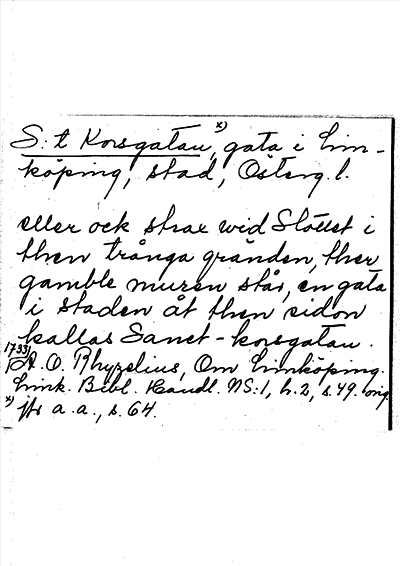 S:t Korsgatan, x) gata i Lin-
köping, stad, Österg. l.
eller ock strax wid Slottet i
then trånga gränden, ther
gamble muren står, en gata
i staden åt then sidon
kallas Sanct-korsgatan.
1733)
A. O. Rhyzelius, Om Linköping.
Link. Bibl. Handl. NS:1, h. 2, s. 49. orig.
x) jfr a. a., s. 64.